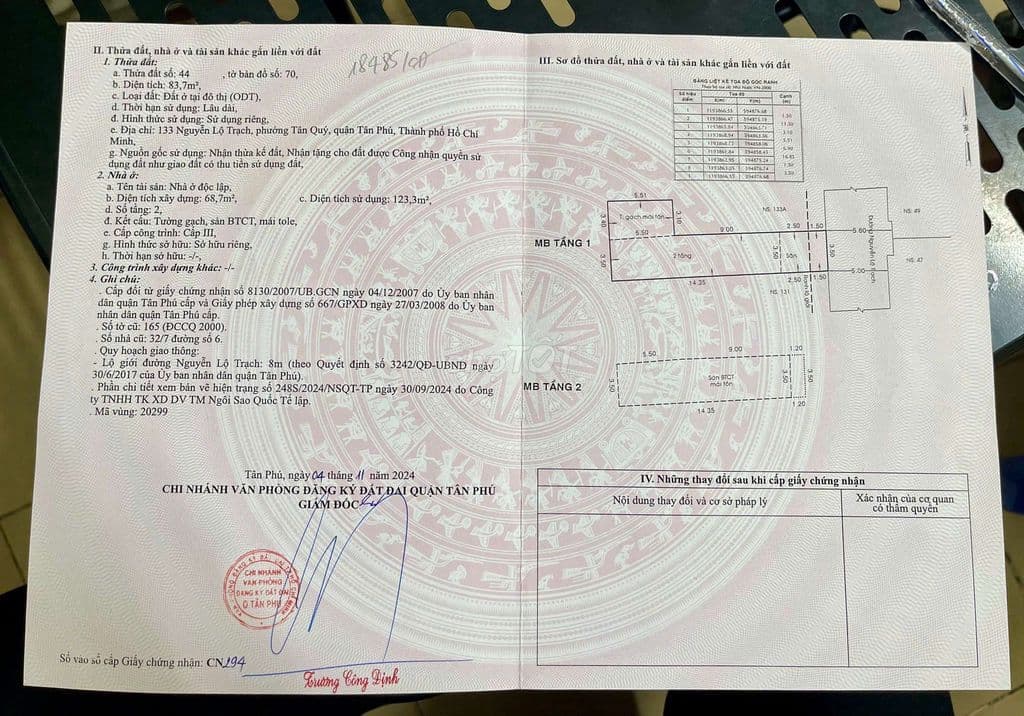 II. Thửa đất, nhà ở và tài sản khác gắn liền với đất
1. Thửa đất:
a. Thửa đất số: 44 , tờ bản đồ số: 70,
b. Diện tích: 83,7m²,
c. Loại đất: Đất ở tại đô thị (ODT),
d. Thời hạn sử dụng: Lâu dài,
đ. Hình thức sử dụng: Sử dụng riêng,
e. Địa chỉ: 133 Nguyễn Lộ Trạch, phường Tân Quý, quận Tân Phú, Thành phố Hồ Chí
Minh,
g. Nguồn gốc sử dụng: Nhận thừa kế đất, Nhận tặng cho đất được Công nhận quyền sử
dụng đất như giao đất có thu tiền sử dụng đất,
2. Nhà ở:
a. Tên tài sản: Nhà ở độc lập,
b. Diện tích xây dựng: 68,7m², c. Diện tích sử dụng: 123,3m²,
d. Số tầng: 2,
đ. Kết cấu: Tường gạch, sàn BTCT, mái tole,
e. Cấp công trình: Cấp III,
g. Hình thức sở hữu: Sở hữu riêng,
h. Thời hạn sở hữu: -/-,
3. Công trình xây dựng khác: -/-
4. Ghi chú:
. Cấp đổi từ giấy chứng nhận số 8130/2007/UB.GCN ngày 04/12/2007 do Ủy ban nhân
dân quận Tân Phú cấp và Giấy phép xây dựng số 667/GPXD ngày 27/03/2008 do Ủy ban
nhân dân quận Tân Phú cấp.
. Số tờ cũ: 165 (ĐCCQ 2000).
. Số nhà cũ: 32/7 đường số 6.
. Quy hoạch giao thông:
- Lộ giới đường Nguyễn Lộ Trạch: 8m (theo Quyết định số 3242/QĐ-UBND ngày
30/6/2017 của Ủy ban nhân dân quận Tân Phú).
. Phần chi tiết xem bản vẽ hiện trạng số 248S/2024/NSQT-TP ngày 30/09/2024 do Công
ty TNHH TK XD DV TM Ngôi Sao Quốc Tế lập.
. Mã vùng: 20299
Tân Phú, ngày 04 tháng 11 năm 2024
CHI NHÁNH VĂN PHÒNG ĐĂNG KÝ ĐẤT ĐAI QUẬN TÂN PHÚ
GIÁM ĐỐC
CHI NHÁNH
VĂN PHÒNG
ĐĂNG KÝ ĐẤT ĐAI
Q.TÂN PHÚ
Số vào sổ cấp Giấy chứng nhận: CN 194
Trương Công Định
III. Sơ đồ thửa đất, nhà ở và tài sản khác gắn liền với đất
BẢNG LIỆT KÊ TỌA ĐỘ GÓC RANH
Số hiệu điểm Tọa độ Cạnh (m)
X(m) Y(m)
MB TẦNG 1
5.51
T. gạch mái tôn
3.40
3.10
5.50
9.00
2.50
1.50
NS: 133A
3.50
2 tầng
3.50
Sân
14.35
2.50
1.50
NS: 131
Ranh lộ giới
5.60
5.00
Đường Nguyễn Lộ Trạch
NS: 49
NS: 47
MB TẦNG 2
5.50
9.00
1.20
3.50
Sàn BTCT
mái tôn
3.50
3.50
14.35
1.20
IV. Những thay đổi sau khi cấp giấy chứng nhận
Nội dung thay đổi và cơ sở pháp lý
Xác nhận của cơ quan
có thẩm quyền